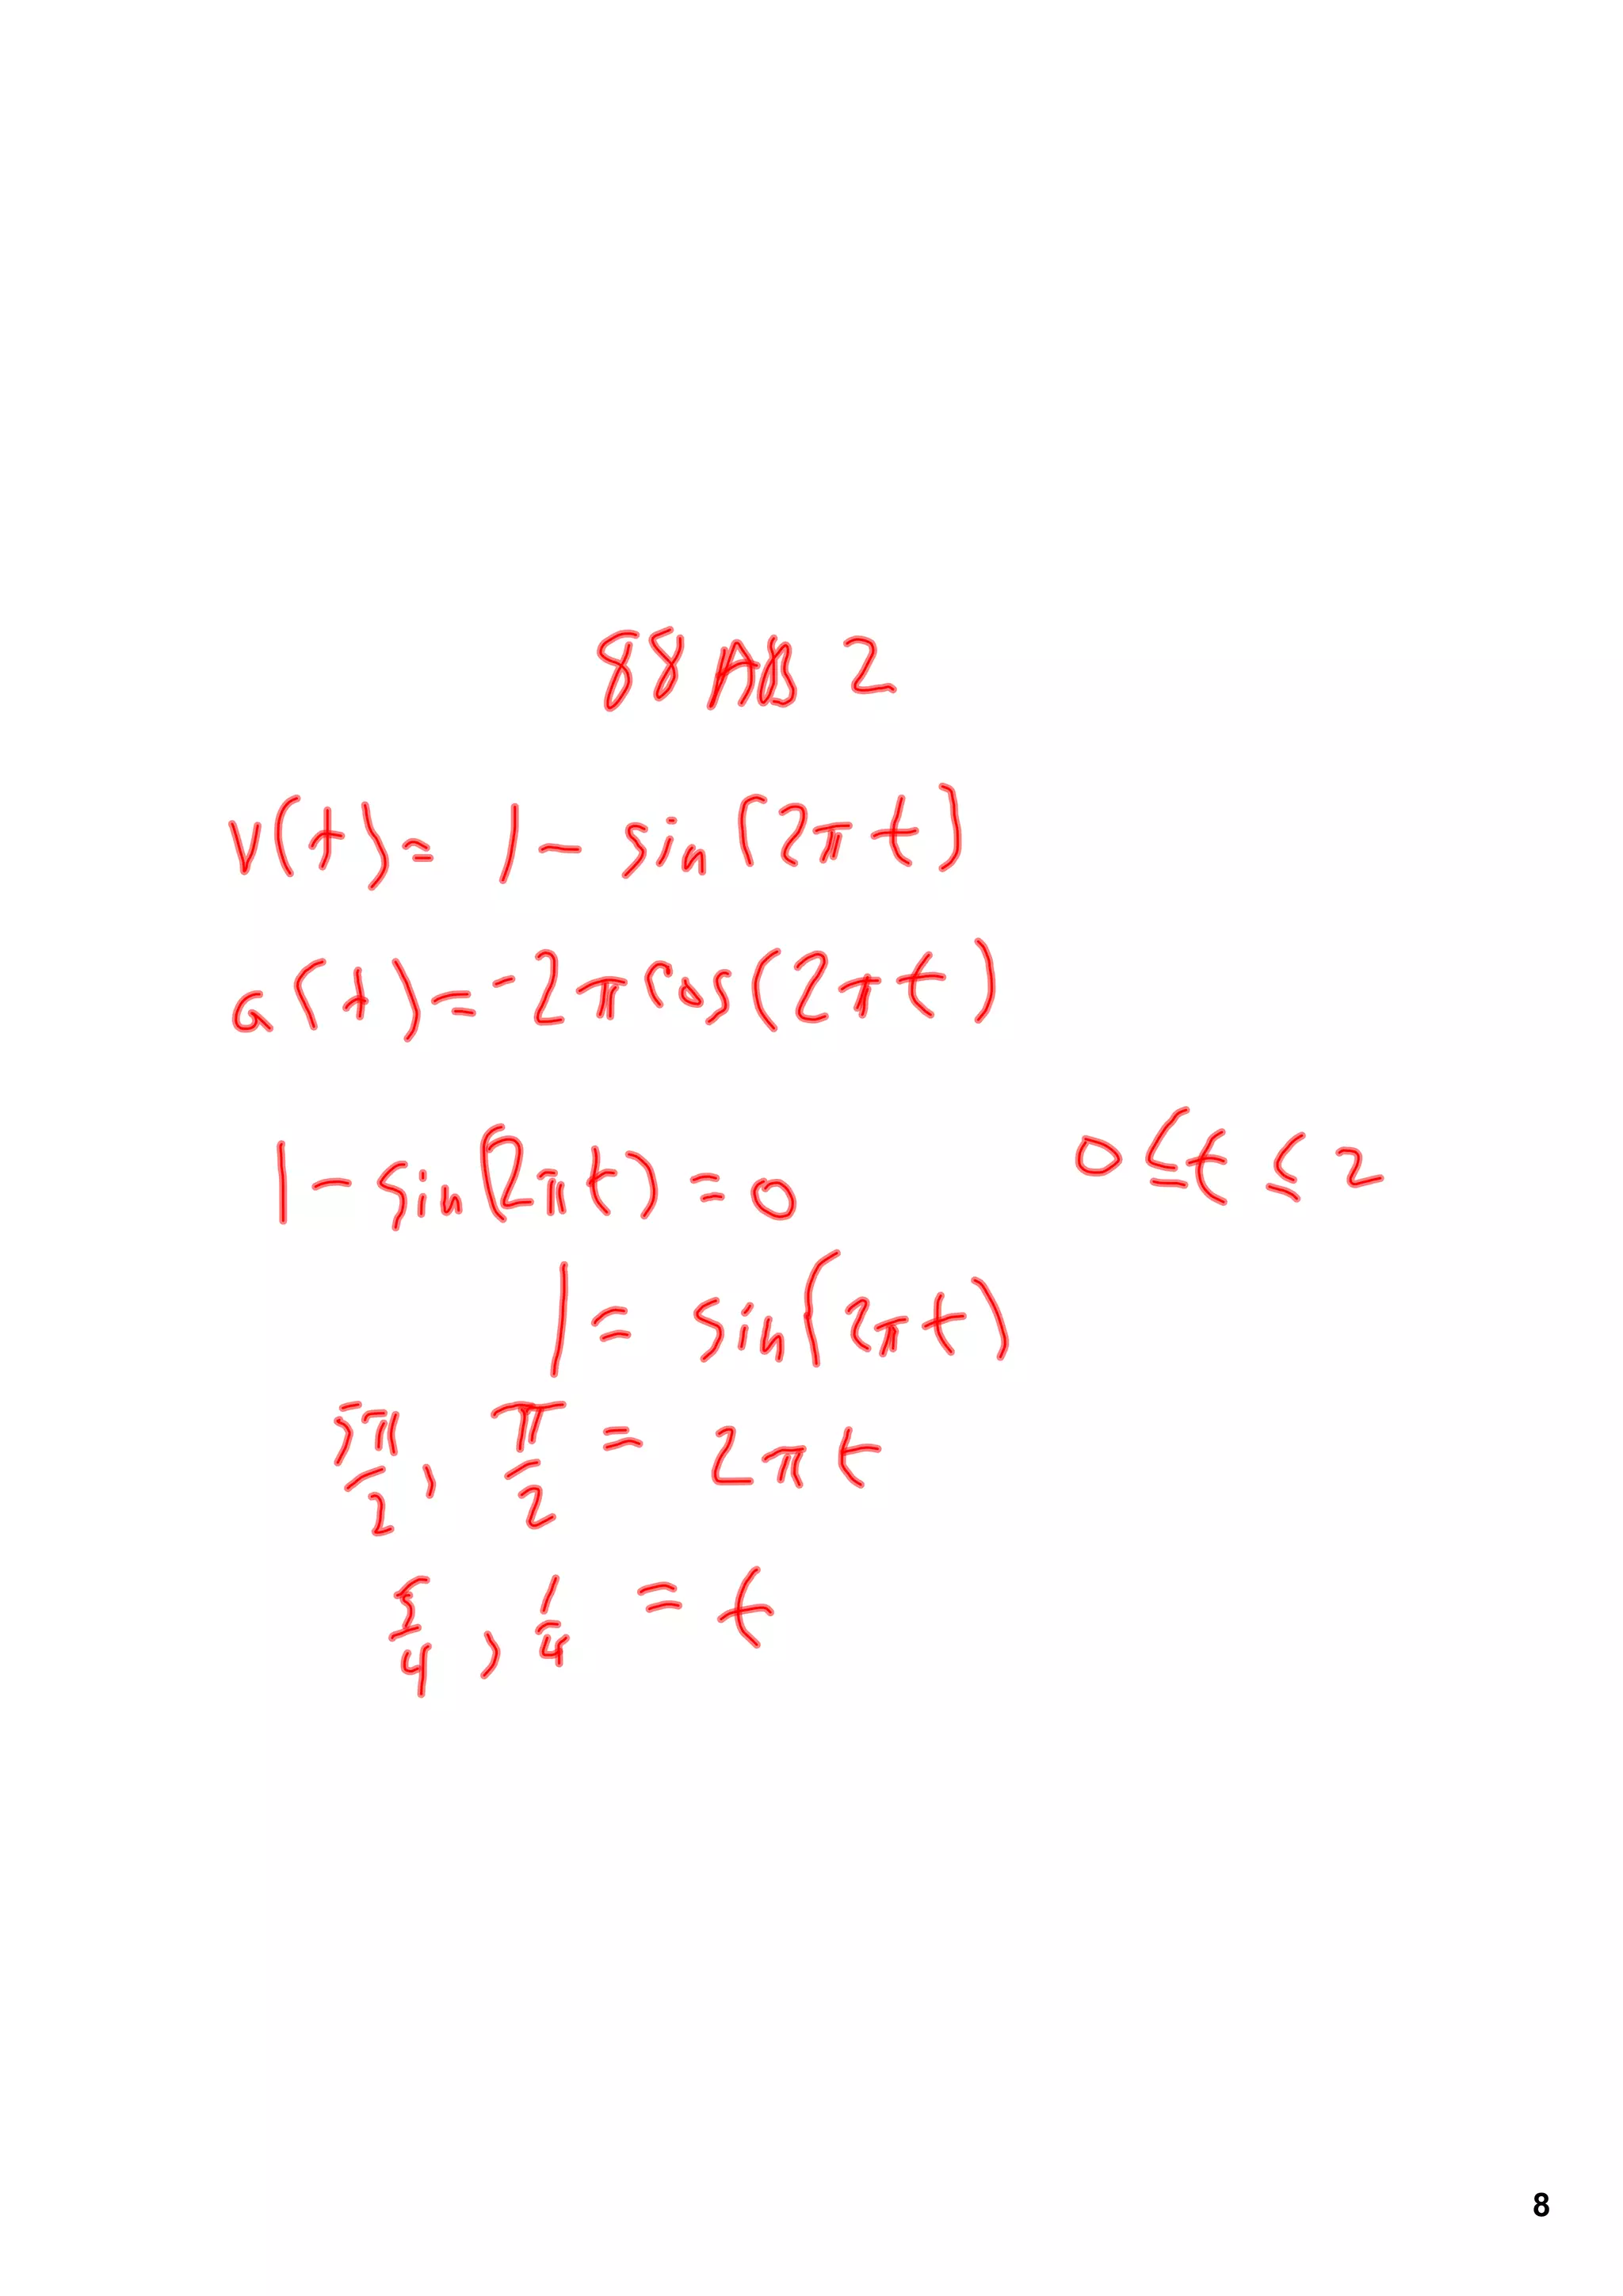 88 AB 2
v(t) = 1 - sin(2πt)
a(t) = -2π cos(2πt)
1 - sin(2πt) = 0 0 ≤ t ≤ 2
1 = sin(2πt)
5π/2, π/2 = 2πt
5/4, 1/4 = t
8